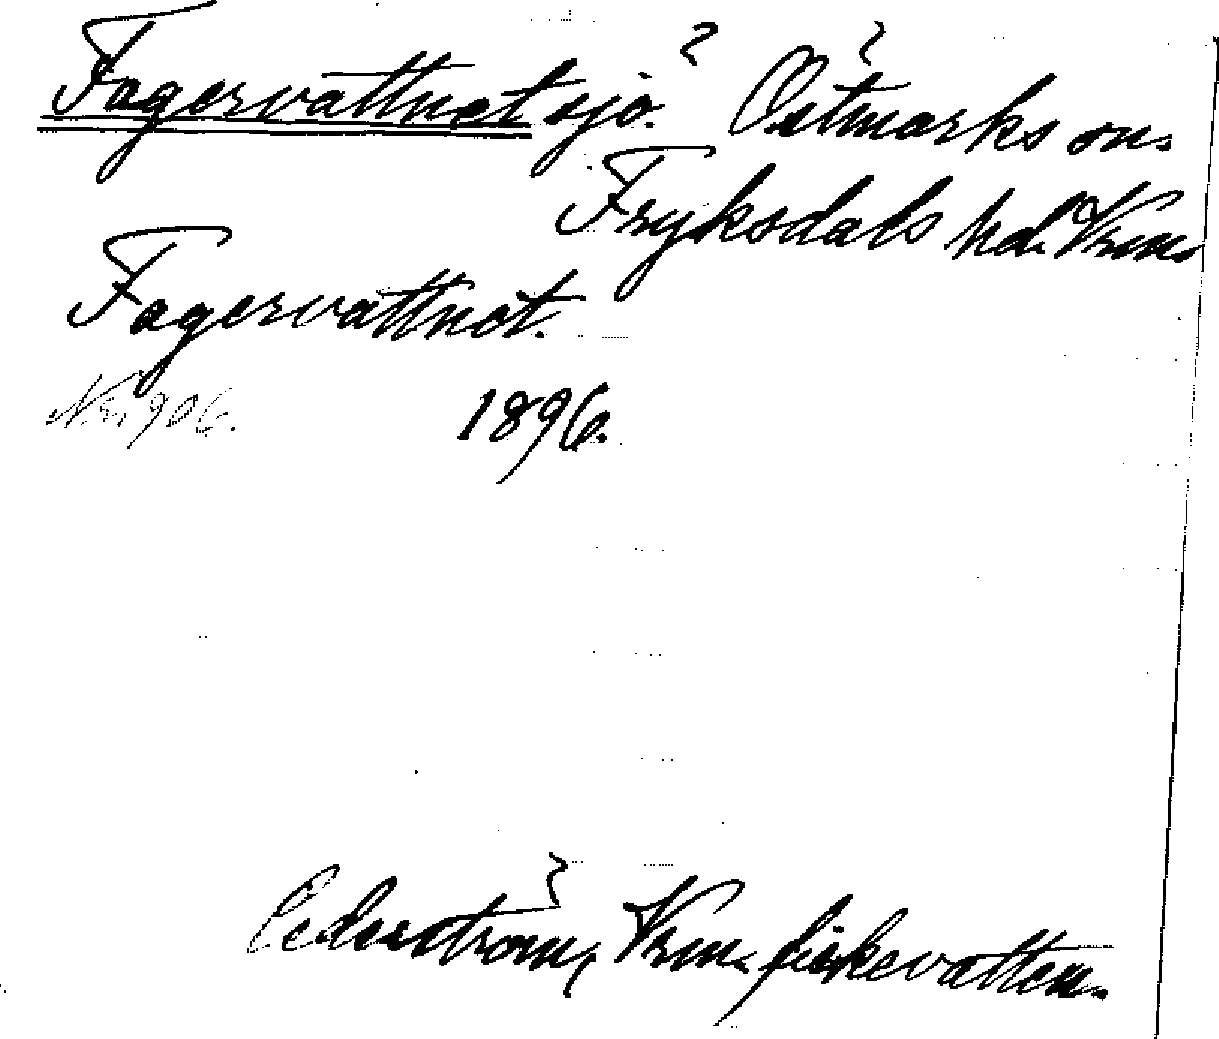 Fagervattnet sjö. Östmarks sn.
Fryksdals hd. Vrml.
Fagervattnet.
Nr. 906. 1896.
Cederström, Vrml. fiskevatten.